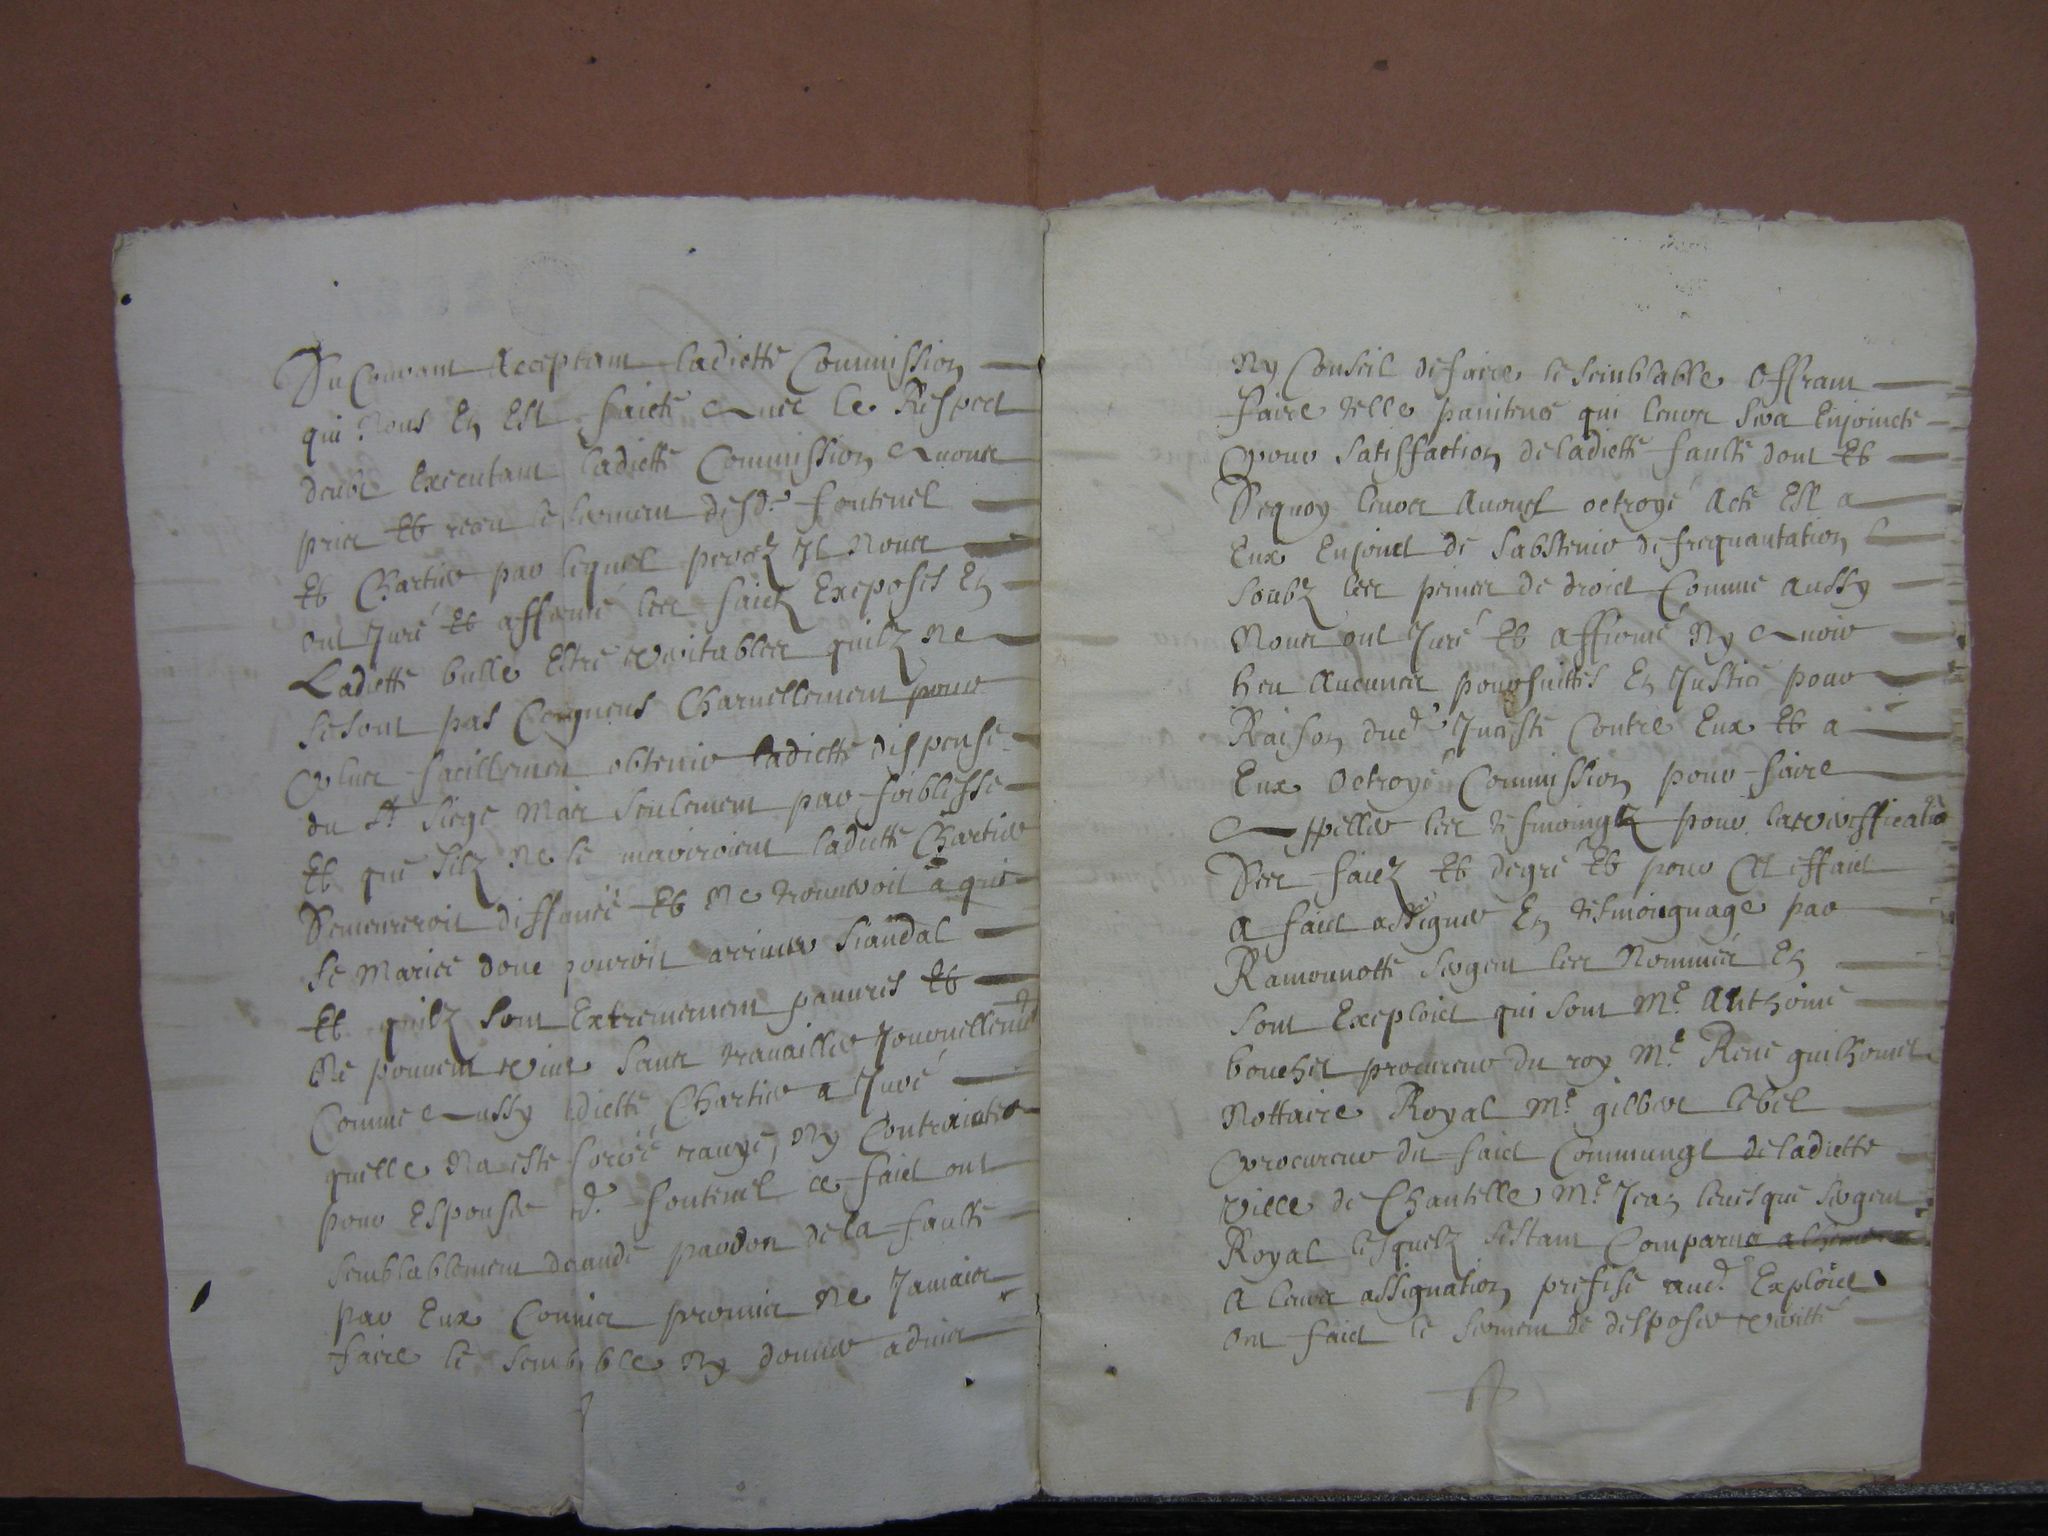 Du Couvant Acceptant ladicte Commission
qui Nous En Est faicte avec le Respect
deubt Executant ladicte Commission avons
pris Et receu le serment desd. fontenel
Et Chartier par lequel Nous
ont Juré Et affirmé les faictz Exposés En
Ladicte bulle Estre veritables quilz Ne
se sont pas Cognus Charnellement pour
plus facillement obtenir ladicte dispense
du St Siege Mais seulement par foiblesse
Et que silz Ne se marioient ladicte Chartier
Demeureroit diffamée Et Ne trouveroit a qui
se Marier dont pouroit arriver scandal
Et quilz sont Extremement pauvres Et
Ne peuvent vivre sans travailler Journellement
Comme aussy ladicte Chartier a Juré
quelle Na esté forcée Ny Contraincte
pour Espouser led. fontenel ce faict ont
semblablement demandé pardon de la faulte
par Eux Commise promis Ne Jamais
faire le semblable Ny donner advis
Ny Conseil de faire le semblable Offrant
faire telle penitence qui leurs sera Enjoincte
pour satisffaction de ladicte faulte dont Et
Dequoy leurs avons octroyé Acte Est a
Eux Enjoinct de sabstenir de frequantation
soubz les peines de droict Comme aussy
Nous ont Juré Et affirmé Ny avoir
heu aucunes poursuittes En Justice pour
Raison dud. Inceste Contre Eux Et a
Eux Octroyé Commission pour faire
appeller les tesmoingtz pour la veriffication
Des faictz Et degré Et pour Cet effaict
a faict assigner En tesmoignage par
Ramonnotte sergent les Nommés En
sont Exploict qui sont Me. Anthoine
bouchet procureur du roy Me. René guilhomet
Nottaire Royal Me. gilbert lebel
procureur du faict Commungt de ladicte
ville de Chantelle Me. Jean levesque sergent
Royal lesquelz sestant Comparus
a leurs assignation prefise aud. Exploict
ont faict le serment de desposer veritté